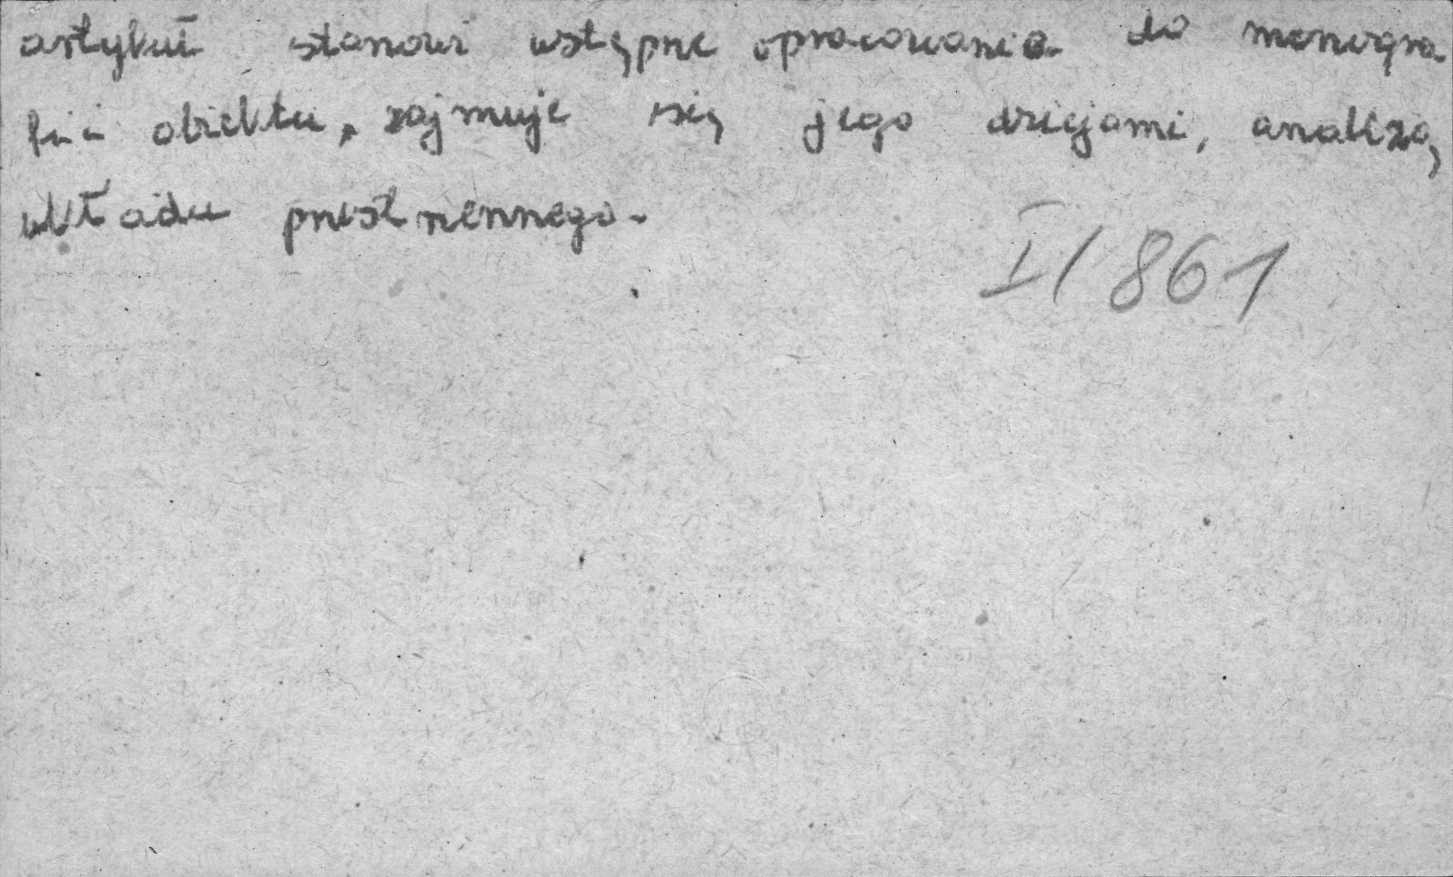 artykuł stanowi wstępne opracowania do monogra
fii obiektu, zajmuje się jego dziejami, analizą
układu przestrzennego.
I/861